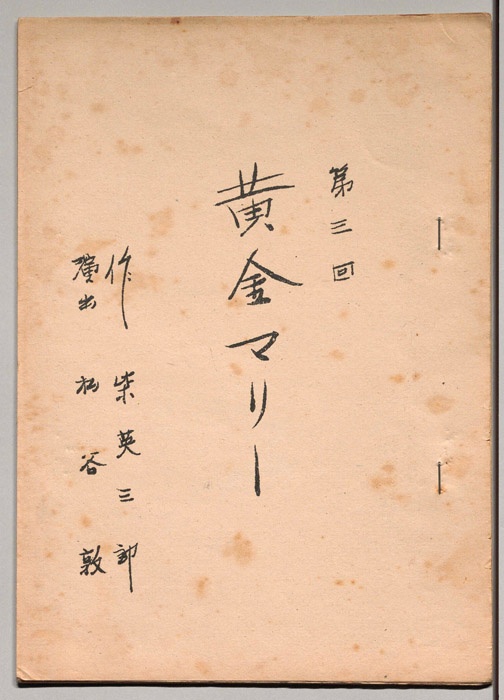 第三回
黄金マリー
作 柴英三郎
演出 松谷敦